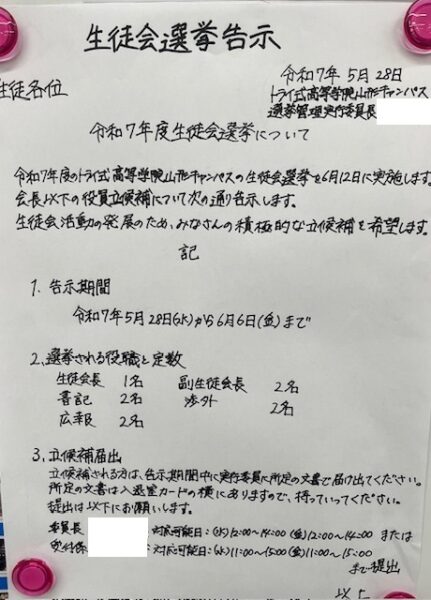 生徒会選挙告示
令和7年5月28日
生徒各位
トライ式高等学院山形キャンパス
選挙管理実行委員長
令和7年度生徒会選挙について
令和7年度のトライ式高等学院山形キャンパスの生徒会選挙を6月12日に実施します。
会長以下の役員立候補について次の通り告示します。
生徒会活動の発展のため、みなさんの積極的な立候補を希望します。
記
1. 告示期間
令和7年5月28日(水)から6月6日(金)まで
2. 選挙される役職と定数
生徒会長 1名 副生徒会長 2名
書記 2名 渉外 2名
広報 2名
3. 立候補届出
立候補される方は、告示期間中に実行委員に所定の文書で届け出てください。
所定の文書は入退室カードの横にありますので、持っていってください。
提出は以下にお願いします。
委員長 : 対応可能日:(水)12:00~14:00 (金)12:00~14:00 または
受付係 : 対応可能日:(水)11:00~15:00 (金)11:00~15:00
まで提出
以上